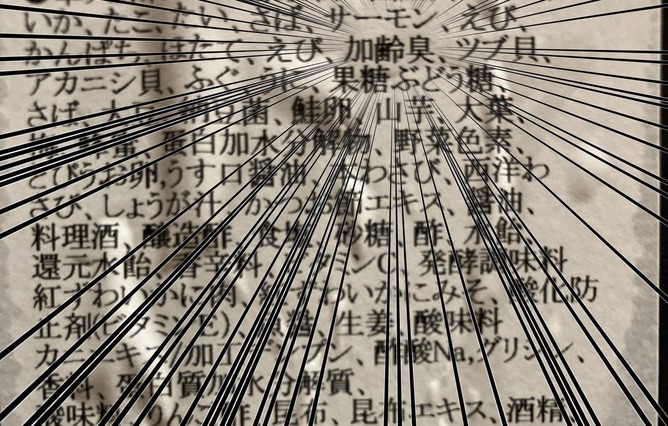 いか、たこ、たい、さば、サーモン、えび、
かんぱち、ほたて、えび、加齢臭、ツブ貝、
アカニシ貝、ふぐ、うに、果糖ぶどう糖、
さば、大豆、納豆菌、鮭卵 山芋、大葉、
梅、蜂蜜、蛋白加水分解物 野菜色素、
とびうお卵,うす口醤油、本わさび、西洋わ
さび、しょうが汁、かつお節エキス、醤油、
料理酒、醸造酢、食塩、砂糖、酢、水飴、
還元水飴、香辛料、ビタミンC、発酵調味料
紅ずわいがに肉、紅ずわいかにみそ、酸化防
止剤(ビタミンE)、魚醤、生姜、酸味料
カニエキス/加工デンプン、酢酸Na,グリシン、
香料、蛋白質加水分解質、
酸味料、りんご酢、昆布、昆布エキス、酒精、